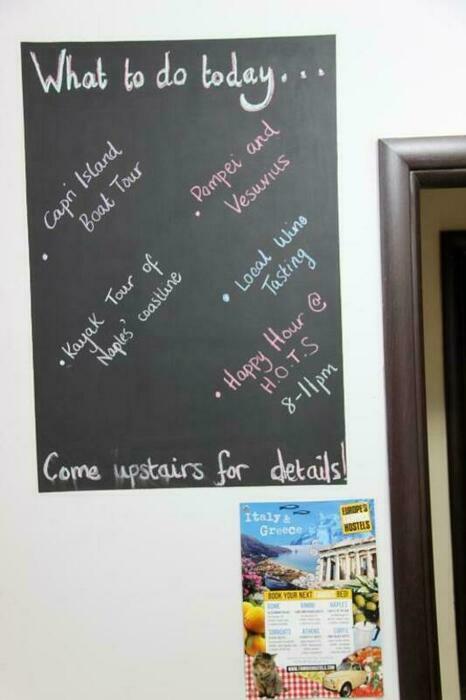 What to do today...
• Capri Island
Boat Tour
• Pompei and
Vesuvius
• Kayak Tour of
Naples' coastline
• Local Wine
Tasting
• Happy Hour @
H.O.T.S
8-11pm
Come upstairs for details!
Italy &
Greece
EUROPE'S
FAMOUS
HOSTELS
BOOK YOUR NEXT FAMOUS BED!
ROME
VENICE
NAPLES
SORRENTO
ATHENS
CORFU
WWW.FAMOUSHOSTELS.COM